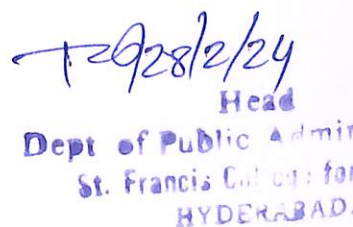 28/2/24
Head
Dept of Public Admin
St. Francis College for
HYDERABAD.